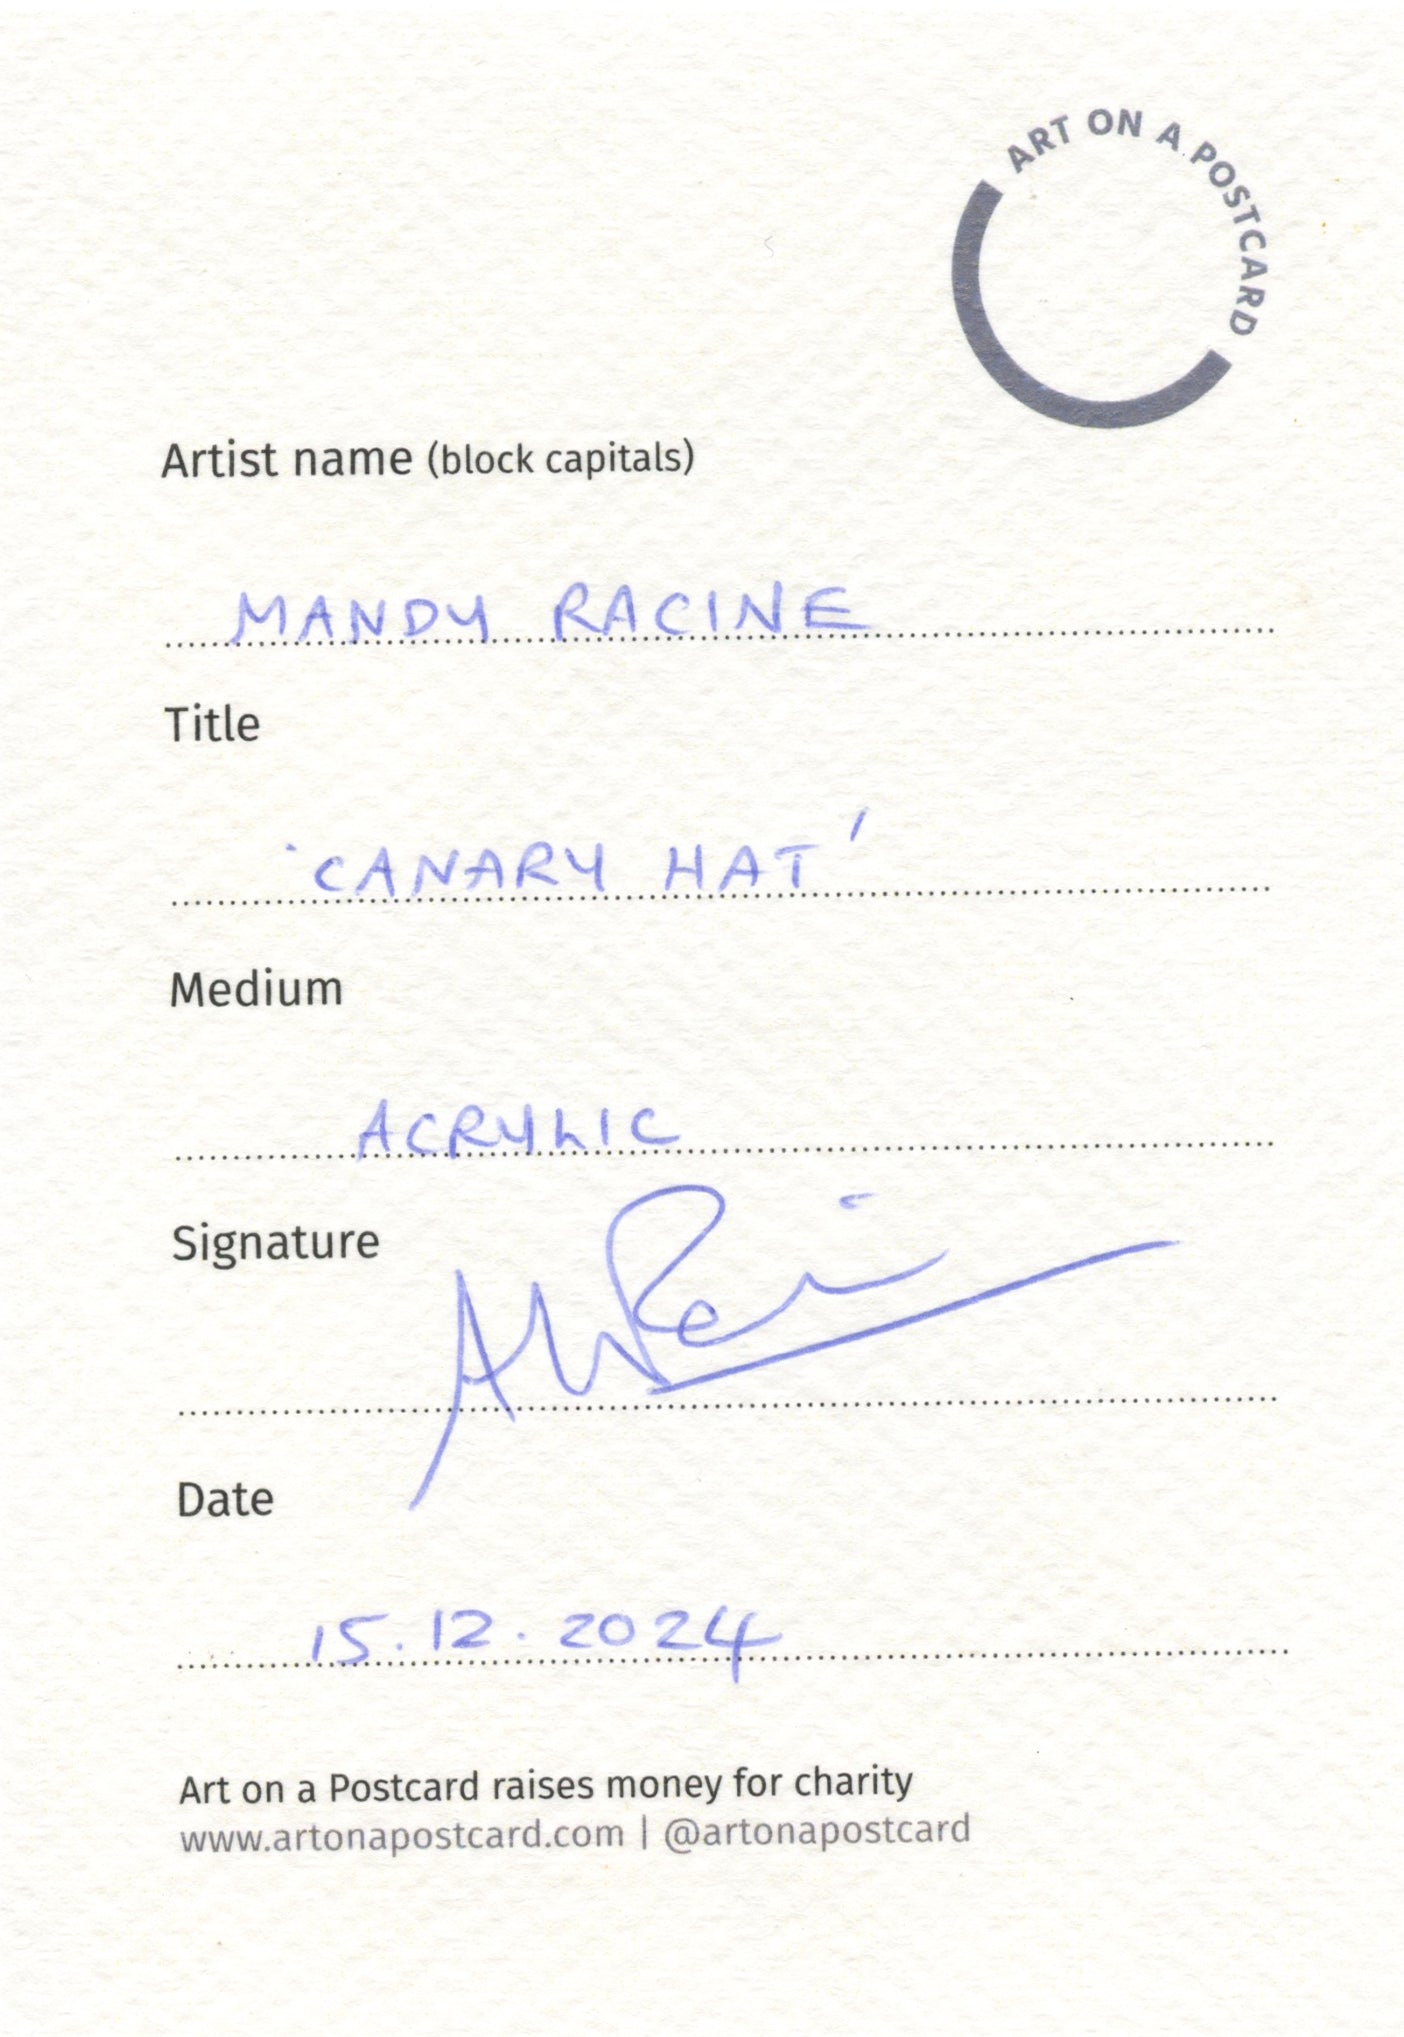 ART ON A POSTCARD
Artist name (block capitals)
MANDY RACINE
Title
'CANARY HAT'
Medium
ACRYLIC
Signature
Date
15.12.2024
Art on a Postcard raises money for charity
www.artonapostcard.com | @artonapostcard